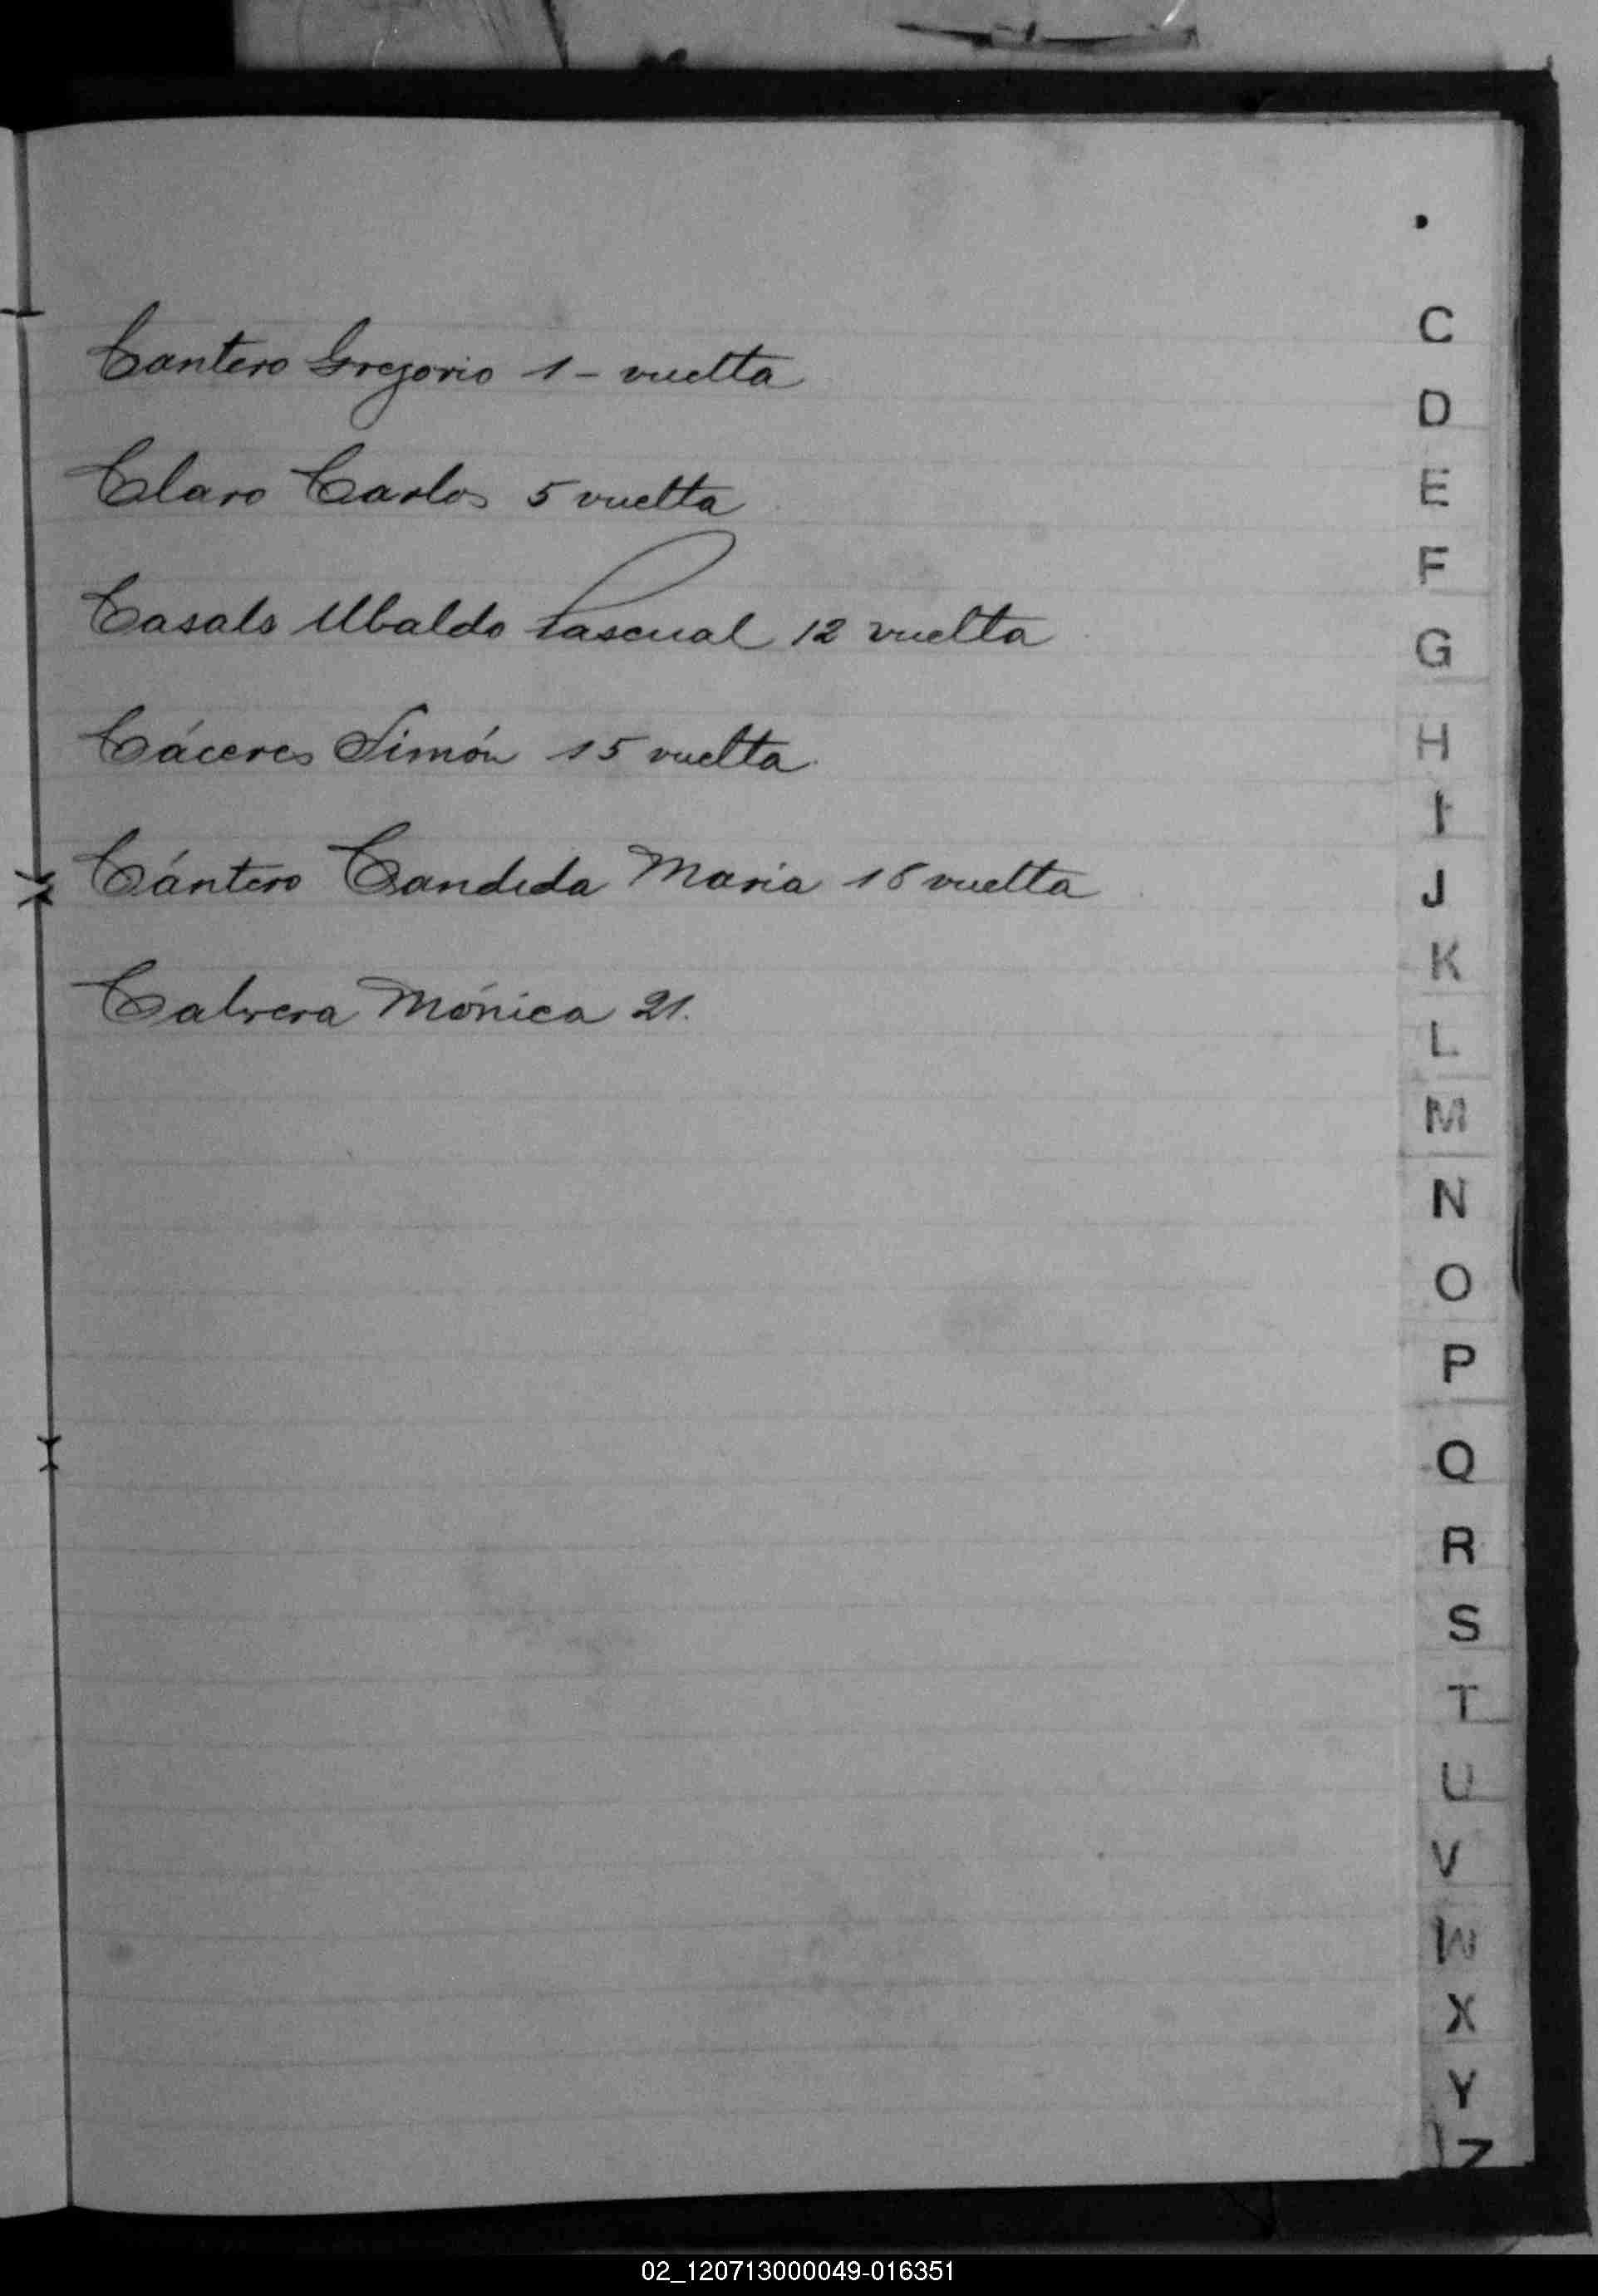 Cantero Gregorio 1 - vuelta
Claro Carlos 5 vuelta
Casals Ubaldo Pascual 12 vuelta
Cáceres Simón 15 vuelta.
Cántero Candida Maria 18 vuelta
Cabrera Mónica 21.
C
D
E
F
G
H
I
J
K
L
M
N
O
P
Q
R
S
T
U
V
W
X
Y
Z
02_120713000049-016351